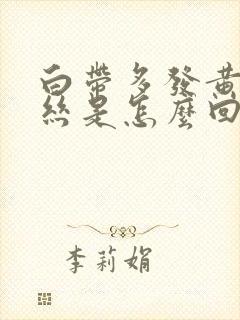 白帶多發黃
絲是怎麼回
李莉娟